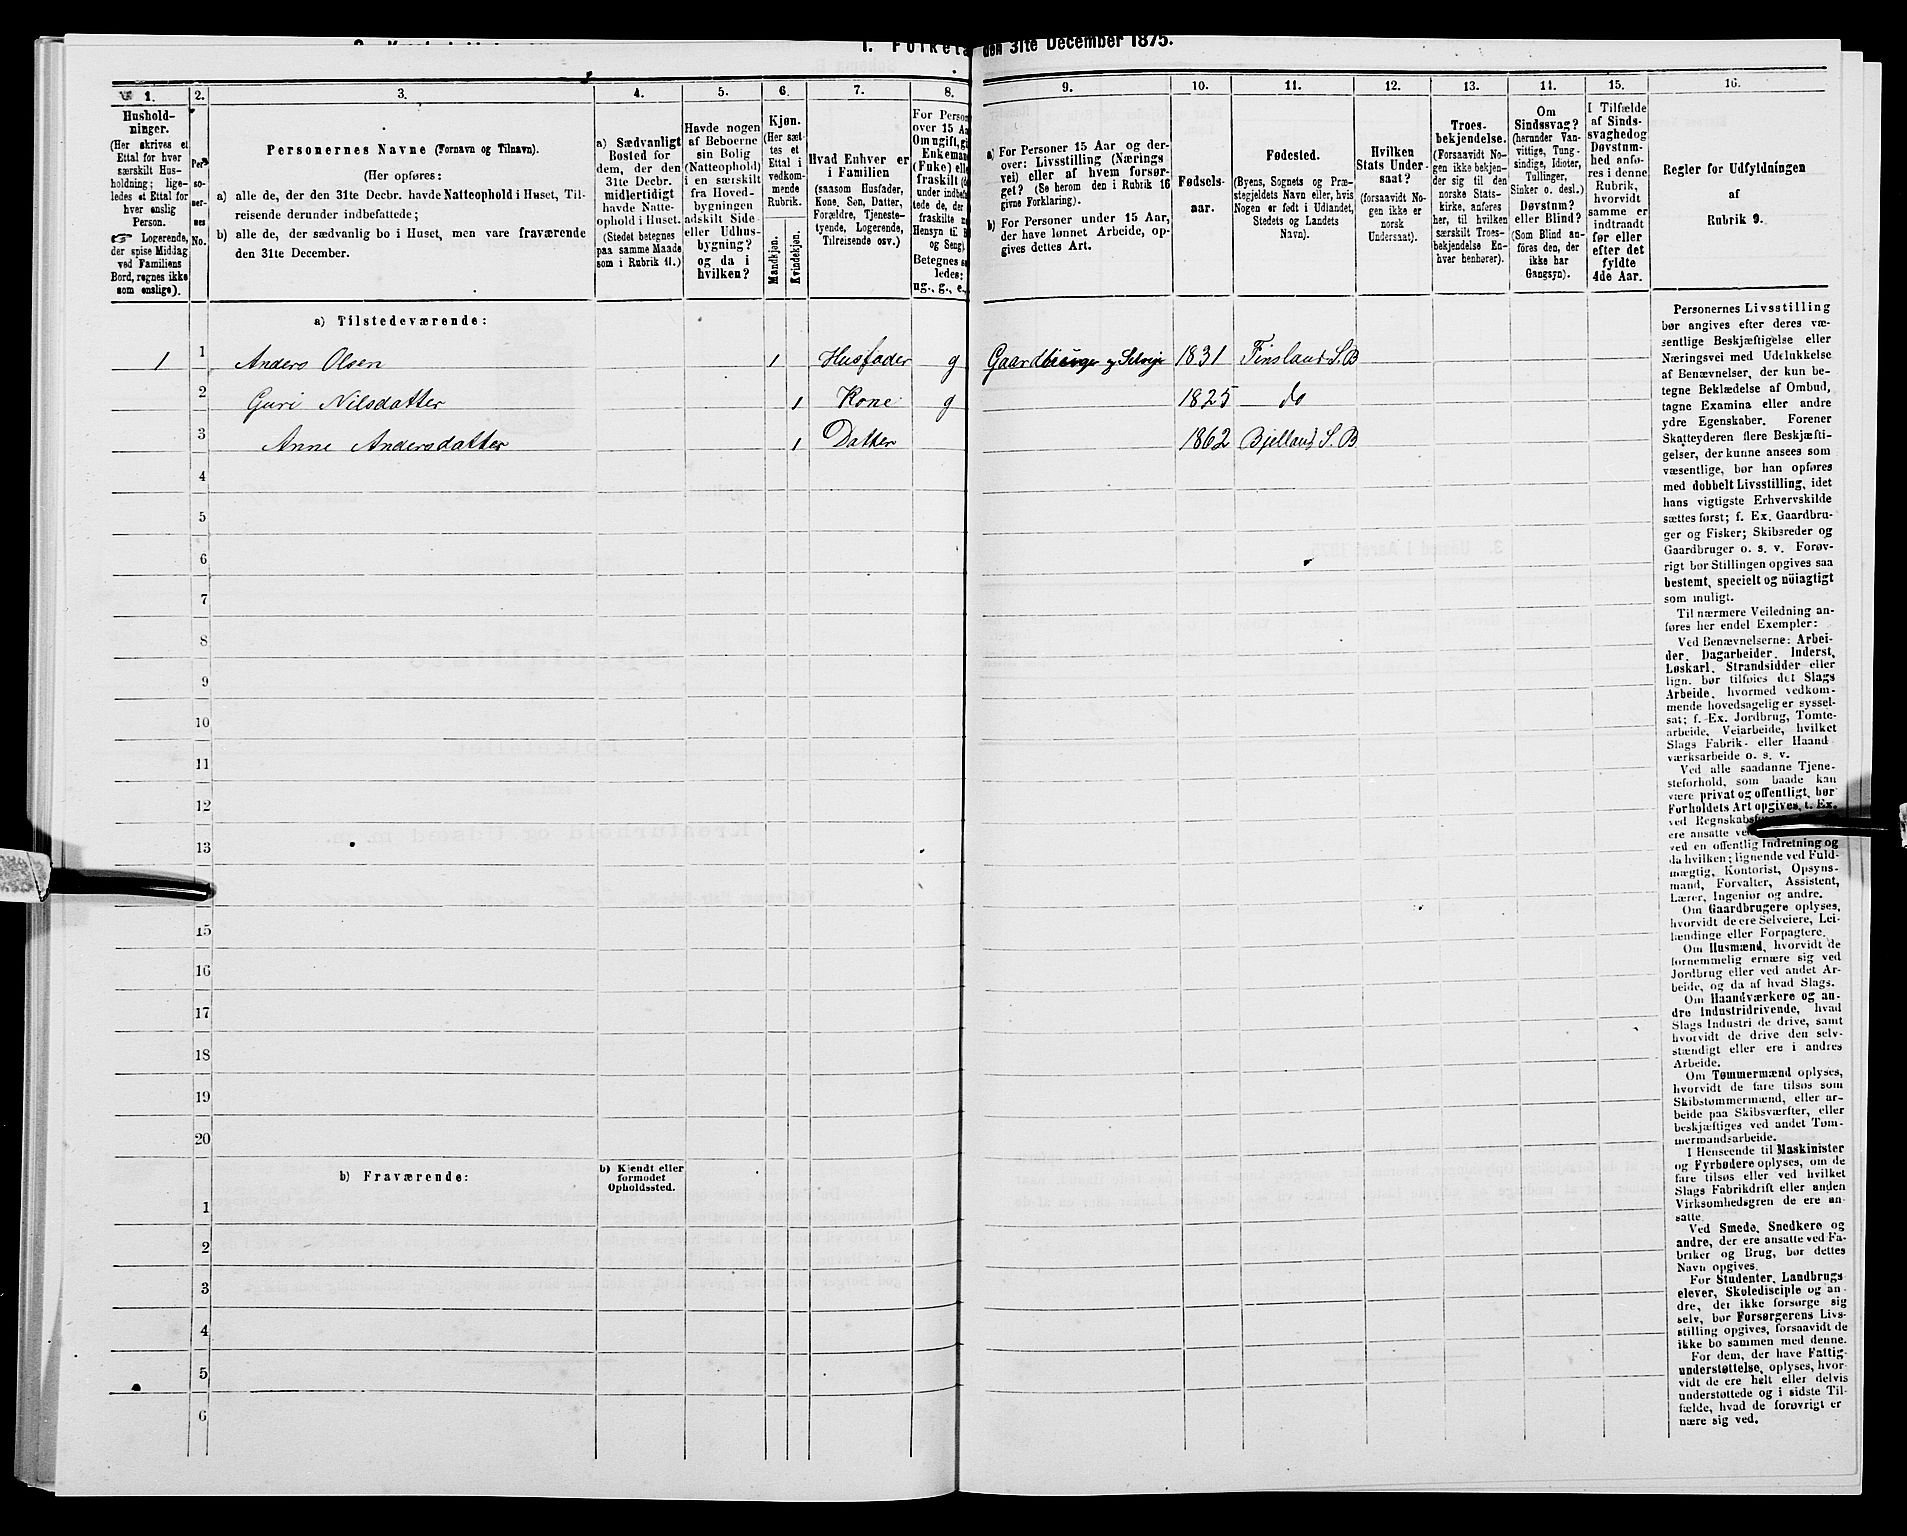 1. Folketæ den 31te December 1875.
1. 2. 3. 4. 5. 6. 7. 8. 9. 10. 11. 12. 13. 14. 15. 16.
Hushold-
ninger.
(Her skrives et
Ettal for hver
særskilt Hus-
holdning; lige-
ledes et Ettal for
hver enslig
Person.
☞ Logerende,
der spise Middag
ved Familiens
Bord, regnes ikke
som enslige).
Per-
so-
ner-
nes
No.
Personernes Navne (Fornavn og Tilnavn).
(Her opføres:
a) alle de, der den 31te Decbr. havde Natteophold i Huset, Til-
reisende derunder indbefattede;
b) alle de, der sædvanlig bo i Huset, men vare fraværende
den 31te December.
a) Sædvanligt
Bosted for
dem, der den
31te Decbr.
midlertidigt
havde Natte-
ophold i Huset.
(Stedet betegnes
paa samme Maade
som i Rubrik 11.)
Havde nogen
af Beboerne
sin Bolig
(Natteophold)
i en særskilt
fra Hoved-
bygningen
adskilt Side-
eller Udhus-
bygning?
og da i
hvilken?
Kjøn.
(Her sæt-
tes et
Ettal i
vedkom-
mende
Rubrik.
Mandkjøn.
Kvindekjøn.
Hvad Enhver er
i Familien
(saasom Husfader,
Kone, Søn, Datter,
Forældre, Tjeneste-
tyende, Logerende,
Tilreisende osv.)
For Person
over 15 Aa
Om ugift, gi
Enkemand
(Enke) elle
fraskilt (
under indbe
tede de, der
fraskilte
Hensyn til B
og Seng).
Betegnes sa
ledes:
ug., g., e.,
a) For Personer 15 Aar og der-
over: Livsstilling (Nærings
vei) eller af hvem forsør-
get? (Se herom den i Rubrik 16
givne Forklaring).
b) For Personer under 15 Aar,
der have lønnet Arbeide, op-
gives dettes Art.
Fødsels-
aar.
Fødested.
(Byens, Sognets og Præ-
stegjeldets Navn eller, hvis
Nogen er født i Udlandet,
Stedets og Landets
Navn).
Hvilken
Stats Under-
saat?
(forsaavidt No-
gen ikke er
norsk
Undersaat).
Troes-
bekjendelse.
(Forsaavidt No-
gen ikke bekjen-
der sig til den
norske Stats-
kirke, anføres
her, til hvilken
særskilt Troes-
bekjendelse En-
hver henhører).
Om
Sindssvag?
(herunder Van-
vittige, Tung-
sindige, Idioter,
Tullinger,
Sinker o. desl.)
Døvstum?
eller Blind?
(Som Blind an-
føres den, der
ikke har
Gangsyn).
I Tilfælde
af Sinds-
svaghedog
Døvstum-
hed anfø-
res i denne
Rubrik,
hvorvidt
samme er
indtraadt
før eller
efter det
fyldte
4de Aar.
Regler for Udfyldningen
af
Rubrik 9.
a) Tilstedeværende:
1 1 Anders Olsen 1 Husfader g Gaardbruger og Selveje 1831 Finsland S.B
2 Guri Nilsdatter 1 Kone g 1825 do
3 Anne Andersdatter 1 Datter 1862 Bjelland S.B
4
5
6
7
8
9
10
11
12
13
15
16
17
18
19
20
b) Fraværende:
b) Kjendt eller
formodet
Opholdssted.
1
2
3
4
5
6
Personernes Livsstilling
bør angives efter deres væ-
sentlige Beskjæftigelse eller
Næringsvei med Udelukkelse
af Benævnelser, der kun be-
tegne Beklædelse af Ombud,
tagne Examina eller andre
ydre Egenskaber. Forener
Skatteyderen flere Beskjæfti-
gelser, der kunne ansees som
væsentlige, bør han opføres
med dobbelt Livsstilling, idet
hans vigtigste Erhvervskilde
sættes først; f. Ex. Gaardbru-
ger og Fisker; Skibsreder og
Gaardbruger o. s. v. Forøv-
rigt bør Stillingen opgives saa
bestemt, specielt og nöiagtigt
som muligt.
Til nærmere Veiledning an-
føres her endel Exempler:
Ved Benævnelserne: Arbei-
der, Dagarbeider, Inderst,
Løskarl, Strandsidder eller
lign. bør tilføies det Slags
Arbeide, hvormed vedkom-
mende hovedsagelig er syssel-
sat; f. Ex. Jordbrug, Tomte-
arbeide, Veiarbeide, hvilket
Slags Fabrik- eller Haand
værksarbeide o. s. v.
Ved alle saadanne Tjene-
steforhold, som baade kan
være privat og offentligt, bør
Forholdets Art opgives, t. Ex.
ved Regnskabs
ere ansatte ve
ved en offentlig Indretning og
da hvilken; lignende ved Fuld-
mægtig, Kontorist, Opsyns-
mand, Forvalter, Assistent,
Lærer, Ingeniør og andre.
Om Gaardbrugere oplyses,
hvorvidt de ere Selveiere, Lei-
lændinge eller Forpagtere.
Om Husmænd, hvorvidt de
fornemmelig ernære sig ved
Jordbrug eller ved andet Ar-
beide, og da af hvad Slags.
Om Haandværkere og an-
dre Industridrivende, hvad
Slags Industri de drive, samt
hvorvidt de drive den selv-
stændigt eller ere i andres
Arbeide.
Om Tømmermænd oplyses,
hvorvidt de fare tilsøs som
Skibstømmermænd, eller ar-
beide paa Skibsværfter, eller
beskjæftiges ved andet Tøm-
mermandsarbeide.
I Henseende til Maskinister
og Fyrbødere oplyses, om de
fare tilsøs eller ved hvilket
Slags Fabrikdrift eller anden
Virksomhedsgren de ere an-
satte.
Ved Smede, Snedkere og
andre, der ere ansatte ved Fa-
briker og Brug, bør dettes
Navn opgives.
For Studenter, Landbrugs
elever, Skoledisciple og an-
dre, der ikke forsørge sig
selv, bør Forsørgerens Livs-
stilling opgives, forsaavidt de
ikke bo sammen med denne.
For dem, der have Fattig-
understøttelse, oplyses, hvor-
vidt de ere helt eller delvis
understøttede og i sidste Til-
fælde, hvad de forøvrigt er
nære sig ved.